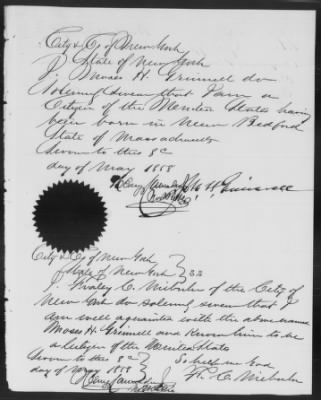 City & Co of New York
State of New York
I, Moses H. Grinnell do
solemnly swear that I am a
Citizen of the United States having
been born in New Bedford
State of Massachusetts
Sworn to this 8c
day of May 1858
M H Grinnell
City & Co of New York
State of New York } SS
I, C. of the City of
New York do solemnly swear that I
am well aquainted with the above named
Moses H. Grinnell and know him to be
a Citizen of the United States
Sworn to this 8c } So help me God
day of May 1858 }
C.